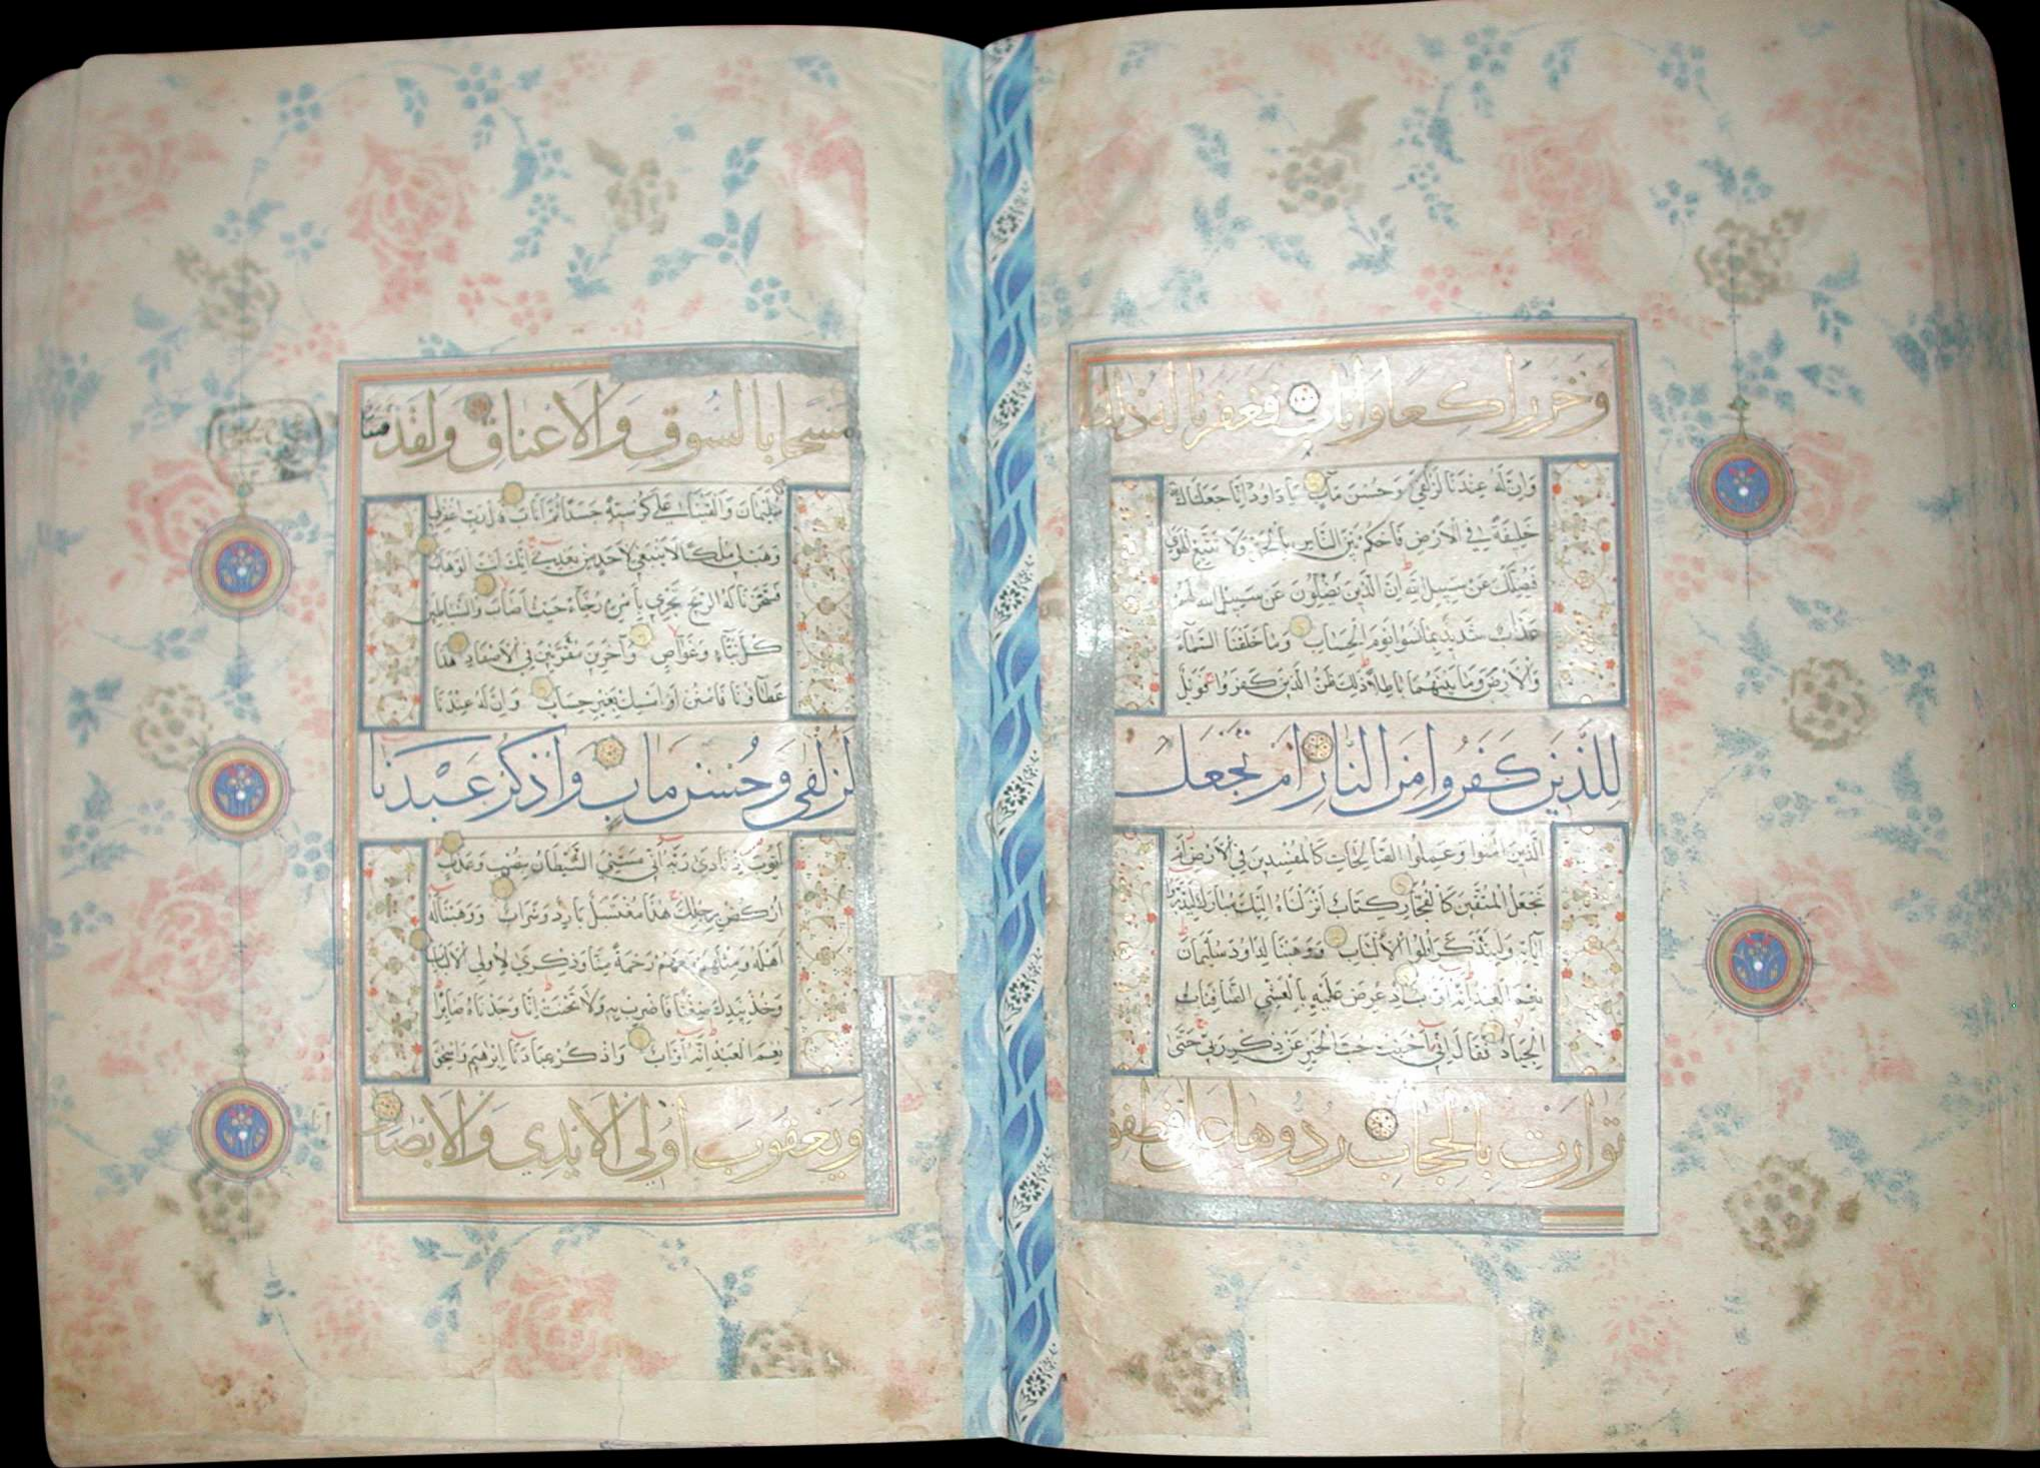 وَخَرَّ رَاكِعًا وَأَنَابَ فَغَفَرْنَا لَهُ ذَلِكَ
وَإِنَّ لَهُ عِنْدَنَا لَزُلْفَى وَحُسْنَ مَآبٍ يَا دَاوُدُ إِنَّا جَعَلْنَاكَ
خَلِيفَةً فِي الْأَرْضِ فَاحْكُمْ بَيْنَ النَّاسِ بِالْحَقِّ وَلَا تَتَّبِعِ الْهَوَى
فَيُضِلَّكَ عَنْ سَبِيلِ اللَّهِ إِنَّ الَّذِينَ يَضِلُّونَ عَنْ سَبِيلِ اللَّهِ لَهُمْ
عَذَابٌ شَدِيدٌ بِمَا نَسُوا يَوْمَ الْحِسَابِ وَمَا خَلَقْنَا السَّمَاءَ
وَالْأَرْضَ وَمَا بَيْنَهُمَا بَاطِلًا ذَلِكَ ظَنُّ الَّذِينَ كَفَرُوا فَوَيْلٌ
لِلَّذِينَ كَفَرُوا مِنَ النَّارِ أَمْ نَجْعَلُ
الَّذِينَ آمَنُوا وَعَمِلُوا الصَّالِحَاتِ كَالْمُفْسِدِينَ فِي الْأَرْضِ أَمْ
نَجْعَلُ الْمُتَّقِينَ كَالْفُجَّارِ كِتَابٌ أَنْزَلْنَاهُ إِلَيْكَ مُبَارَكٌ لِيَدَّبَّرُوا
آيَاتِهِ وَلِيَتَذَكَّرَ أُولُوا الْأَلْبَابِ وَوَهَبْنَا لِدَاوُدَ سُلَيْمَانَ
نِعْمَ الْعَبْدُ إِنَّهُ أَوَّابٌ إِذْ عُرِضَ عَلَيْهِ بِالْعَشِيِّ الصَّافِنَاتُ
الْجِيَادُ فَقَالَ إِنِّي أَحْبَبْتُ حُبَّ الْخَيْرِ عَنْ ذِكْرِ رَبِّي حَتَّى
تَوَارَتْ بِالْحِجَابِ رُدُّوهَا عَلَيَّ فَطَفِقَ
مَسْحًا بِالسُّوقِ وَالْأَعْنَاقِ وَلَقَدْ فَتَنَّا
سُلَيْمَانَ وَأَلْقَيْنَا عَلَى كُرْسِيِّهِ جَسَدًا ثُمَّ أَنَابَ قَالَ رَبِّ اغْفِرْ لِي
وَهَبْ لِي مُلْكًا لَا يَنْبَغِي لِأَحَدٍ مِنْ بَعْدِي إِنَّكَ أَنْتَ الْوَهَّابُ
فَسَخَّرْنَا لَهُ الرِّيحَ تَجْرِي بِأَمْرِهِ رُخَاءً حَيْثُ أَصَابَ وَالشَّيَاطِينَ
كُلَّ بَنَّاءٍ وَغَوَّاصٍ وَآخَرِينَ مُقَرَّنِينَ فِي الْأَصْفَادِ هَذَا
عَطَاؤُنَا فَامْنُنْ أَوْ أَمْسِكْ بِغَيْرِ حِسَابٍ وَإِنَّ لَهُ عِنْدَنَا
لَزُلْفَى وَحُسْنَ مَآبٍ وَاذْكُرْ عَبْدَنَا
أَيُّوبَ إِذْ نَادَى رَبَّهُ أَنِّي مَسَّنِيَ الشَّيْطَانُ بِنُصْبٍ وَعَذَابٍ
ارْكُضْ بِرِجْلِكَ هَذَا مُغْتَسَلٌ بَارِدٌ وَشَرَابٌ وَوَهَبْنَا لَهُ
أَهْلَهُ وَمِثْلَهُمْ مَعَهُمْ رَحْمَةً مِنَّا وَذِكْرَى لِأُولِي الْأَلْبَابِ
وَخُذْ بِيَدِكَ ضِغْثًا فَاضْرِبْ بِهِ وَلَا تَحْنَثْ إِنَّا وَجَدْنَاهُ صَابِرًا
نِعْمَ الْعَبْدُ إِنَّهُ أَوَّابٌ وَاذْكُرْ عِبَادَنَا إِبْرَاهِيمَ وَإِسْحَقَ
وَيَعْقُوبَ أُولِي الْأَيْدِي وَالْأَبْصَارِ